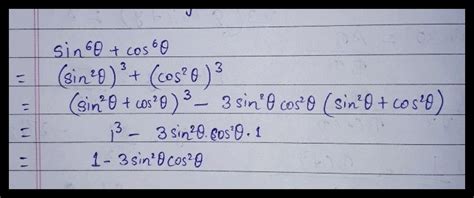 sin⁶θ + cos⁶θ
= (sin²θ)³ + (cos²θ)³
= (sin²θ + cos²θ)³ - 3 sin²θ cos²θ (sin²θ + cos²θ)
= 1³ - 3 sin²θ. cos²θ • 1
= 1 - 3 sin²θ cos²θ